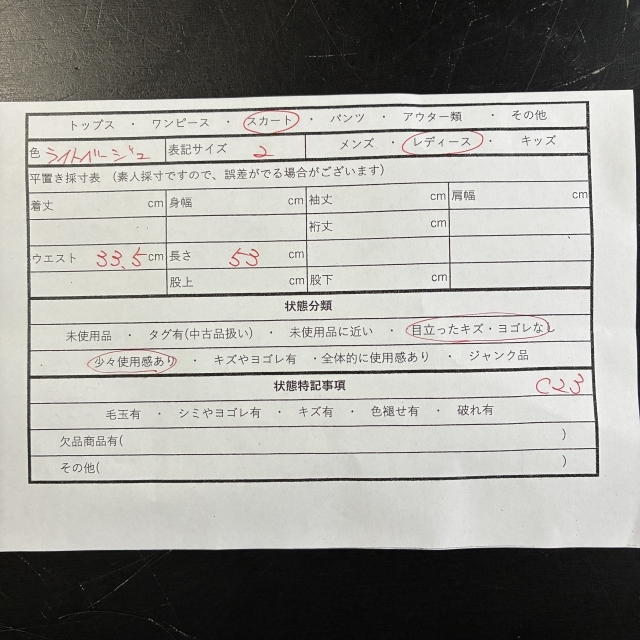 トップス ・ ワンピース ・ スカート ・ パンツ ・ アウター類 ・ その他
色 ライトベージュ 表記サイズ 2 メンズ ・ レディース ・ キッズ
平置き採寸表 （素人採寸ですので、誤差がでる場合がございます）
着丈 cm 身幅 cm 袖丈 cm 肩幅 cm
裄丈 cm
ウエスト 33.5cm 長さ 53 cm
股上 cm 股下 cm
状態分類
未使用品 ・ タグ有(中古品扱い) ・ 未使用品に近い ・ 目立ったキズ・ヨゴレなし
少々使用感あり ・ キズやヨゴレ有 ・全体的に使用感あり ・ ジャンク品
状態特記事項 C23
毛玉有 ・ シミやヨゴレ有 ・ キズ有 ・ 色褪せ有 ・ 破れ有
欠品商品有( )
その他( )